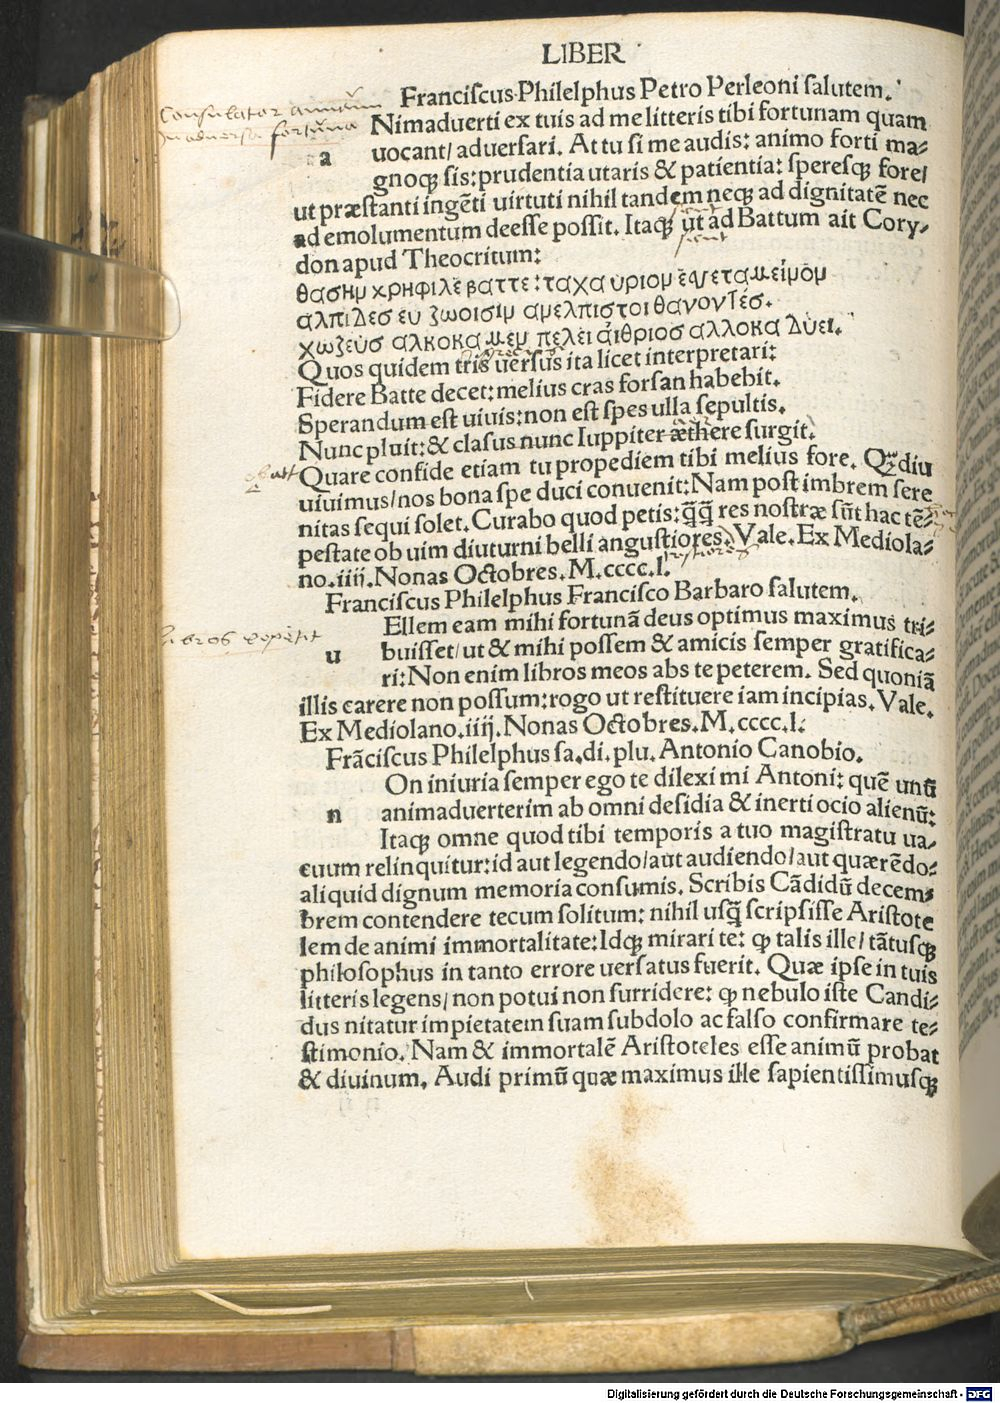 LIBER
Franciſcus Philelphus Petro Perleoni ſalutem.
Conſulator amicum
in aduerſa fortuna
a
Nimaduerti ex tuis ad me litteris tibi fortunam quam
uocant/ aduerſari. At tu ſi me audis: animo forti ma-
gnoqꝫ ſis: prudentia utaris & patientia: ſperesqꝫ fore/
ut præſtanti ingēti uirtuti nihil tandem neqꝫ ad dignitatē nec
ad emolumentum deeſſe poſſit. Itaqꝫ ut ad Battum ait Cory-
don apud Theocritum:
θασημ χρηφιλὲ βαττε: ταχα ὑριομ ἐψεταμειμομ
αλπιδεσ ευ ζωοισιμ αμελπιστοι θανοντέσ.
χωζευσ αλκοκα μεμ πελει αἰθριοσ αλλοκα δύει.
Quos quidem tris uerſus ita licet interpretari:
Fidere Batte decet: melius cras forſan habebit.
Sperandum eſt uiuis: non eſt ſpes ulla ſepultis.
Nunc pluit: & claſus nunc Iuppiter æthere ſurgit.
Quare confide etiam tu propediem tibi melius fore. Qꝫdiu
uiuimus/ nos bona ſpe duci conuenit: Nam poſt imbrem ſere
nitas ſequi ſolet. Curabo quod petis: q̄q̄ res noſtræ ſūt hac tē-
peſtate ob uim diuturni belli anguſtiores. Vale. Ex Mediola-
no. iiij. Nonas Octobres. M. cccc. l.
Franciſcus Philelphus Franciſco Barbaro ſalutem.
libros repetit
u
Ellem eam mihi fortunā deus optimus maximus tri-
buiſſet/ ut & mihi poſſem & amicis ſemper gratifica-
ri: Non enim libros meos abs te peterem. Sed quoniā
illis carere non poſſum: rogo ut reſtituere iam incipias. Vale.
Ex Mediolano. iiij. Nonas Octobres. M. cccc. l.
Frāciſcus Philelphus ſa. di. plu. Antonio Canobio.
n
On iniuria ſemper ego te dilexi mi Antoni: quē unū
animaduerterim ab omni deſidia & inerti ocio alienū:
Itaqꝫ omne quod tibi temporis a tuo magiſtratu ua-
cuum relinquitur: id aut legendo/ aut audiendo/ aut quærēdo-
aliquid dignum memoria conſumis. Scribis Cādidū decem-
brem contendere tecum ſolitum: nihil uſq̄ ſcripſiſſe Ariſtote
lem de animi immortalitate: Idqꝫ mirari te: ꝙ talis ille/ tātuſqꝫ
philoſophus in tanto errore uerſatus fuerit. Quæ ipſe in tuis
litteris legens/ non potui non ſurridere: ꝙ nebulo iſte Candi-
dus nitatur impietatem ſuam ſubdolo ac falſo confirmare te-
ſtimonio. Nam & immortalē Ariſtoteles eſſe animū probat
& diuinum. Audi primū quæ maximus ille ſapientiſſimuſqꝫ
Digitalisierung gefördert durch die Deutsche Forschungsgemeinschaft - DFG